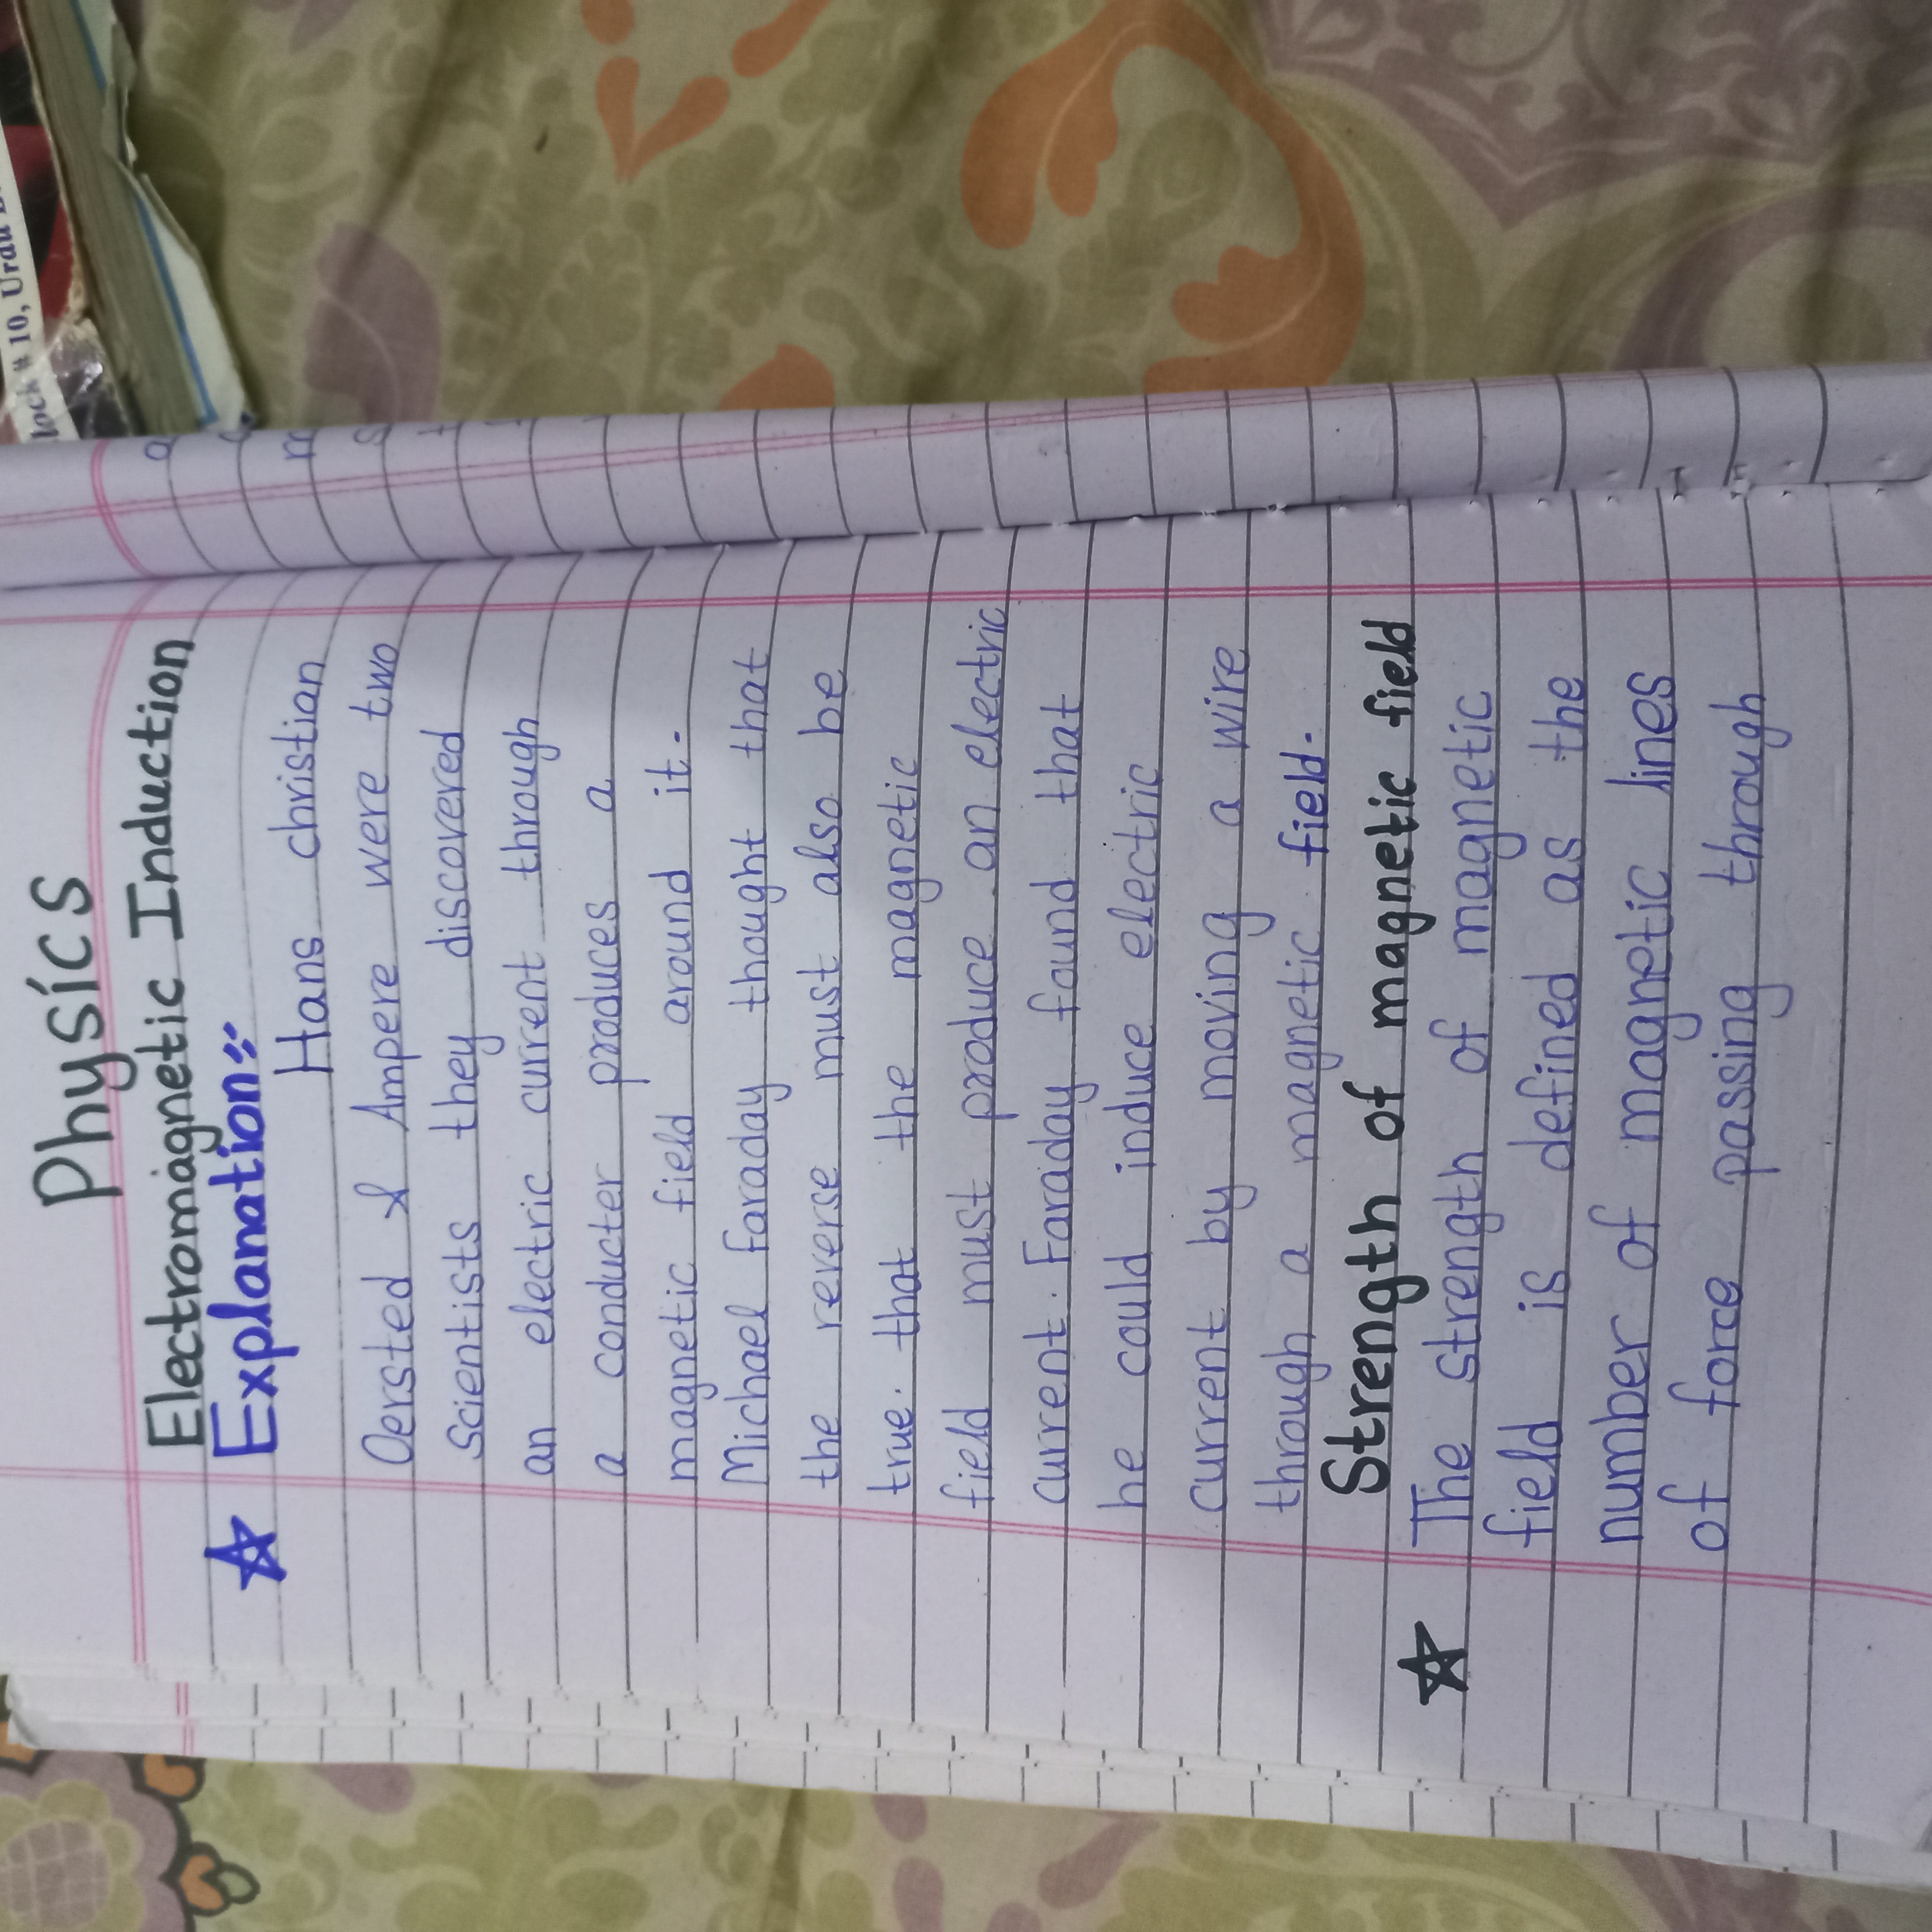 Physics
Electromagnetic Induction
☆ Explanation:-
Hans christian
Oersted & Ampere were two
scientists they discovered
an electric current through
a conducter produces a
magnetic field around it.
Michael faraday thought that
the reverse must also be
true. that the magnetic
field must produce an electric
current. Faraday found that
he could induce electric
current by moving a wire
through a magnetic field.
Strength of magnetic field
☆ The strength of magnetic
field is defined as the
number of magnetic lines
of force passing through
lock # 10, Urdu